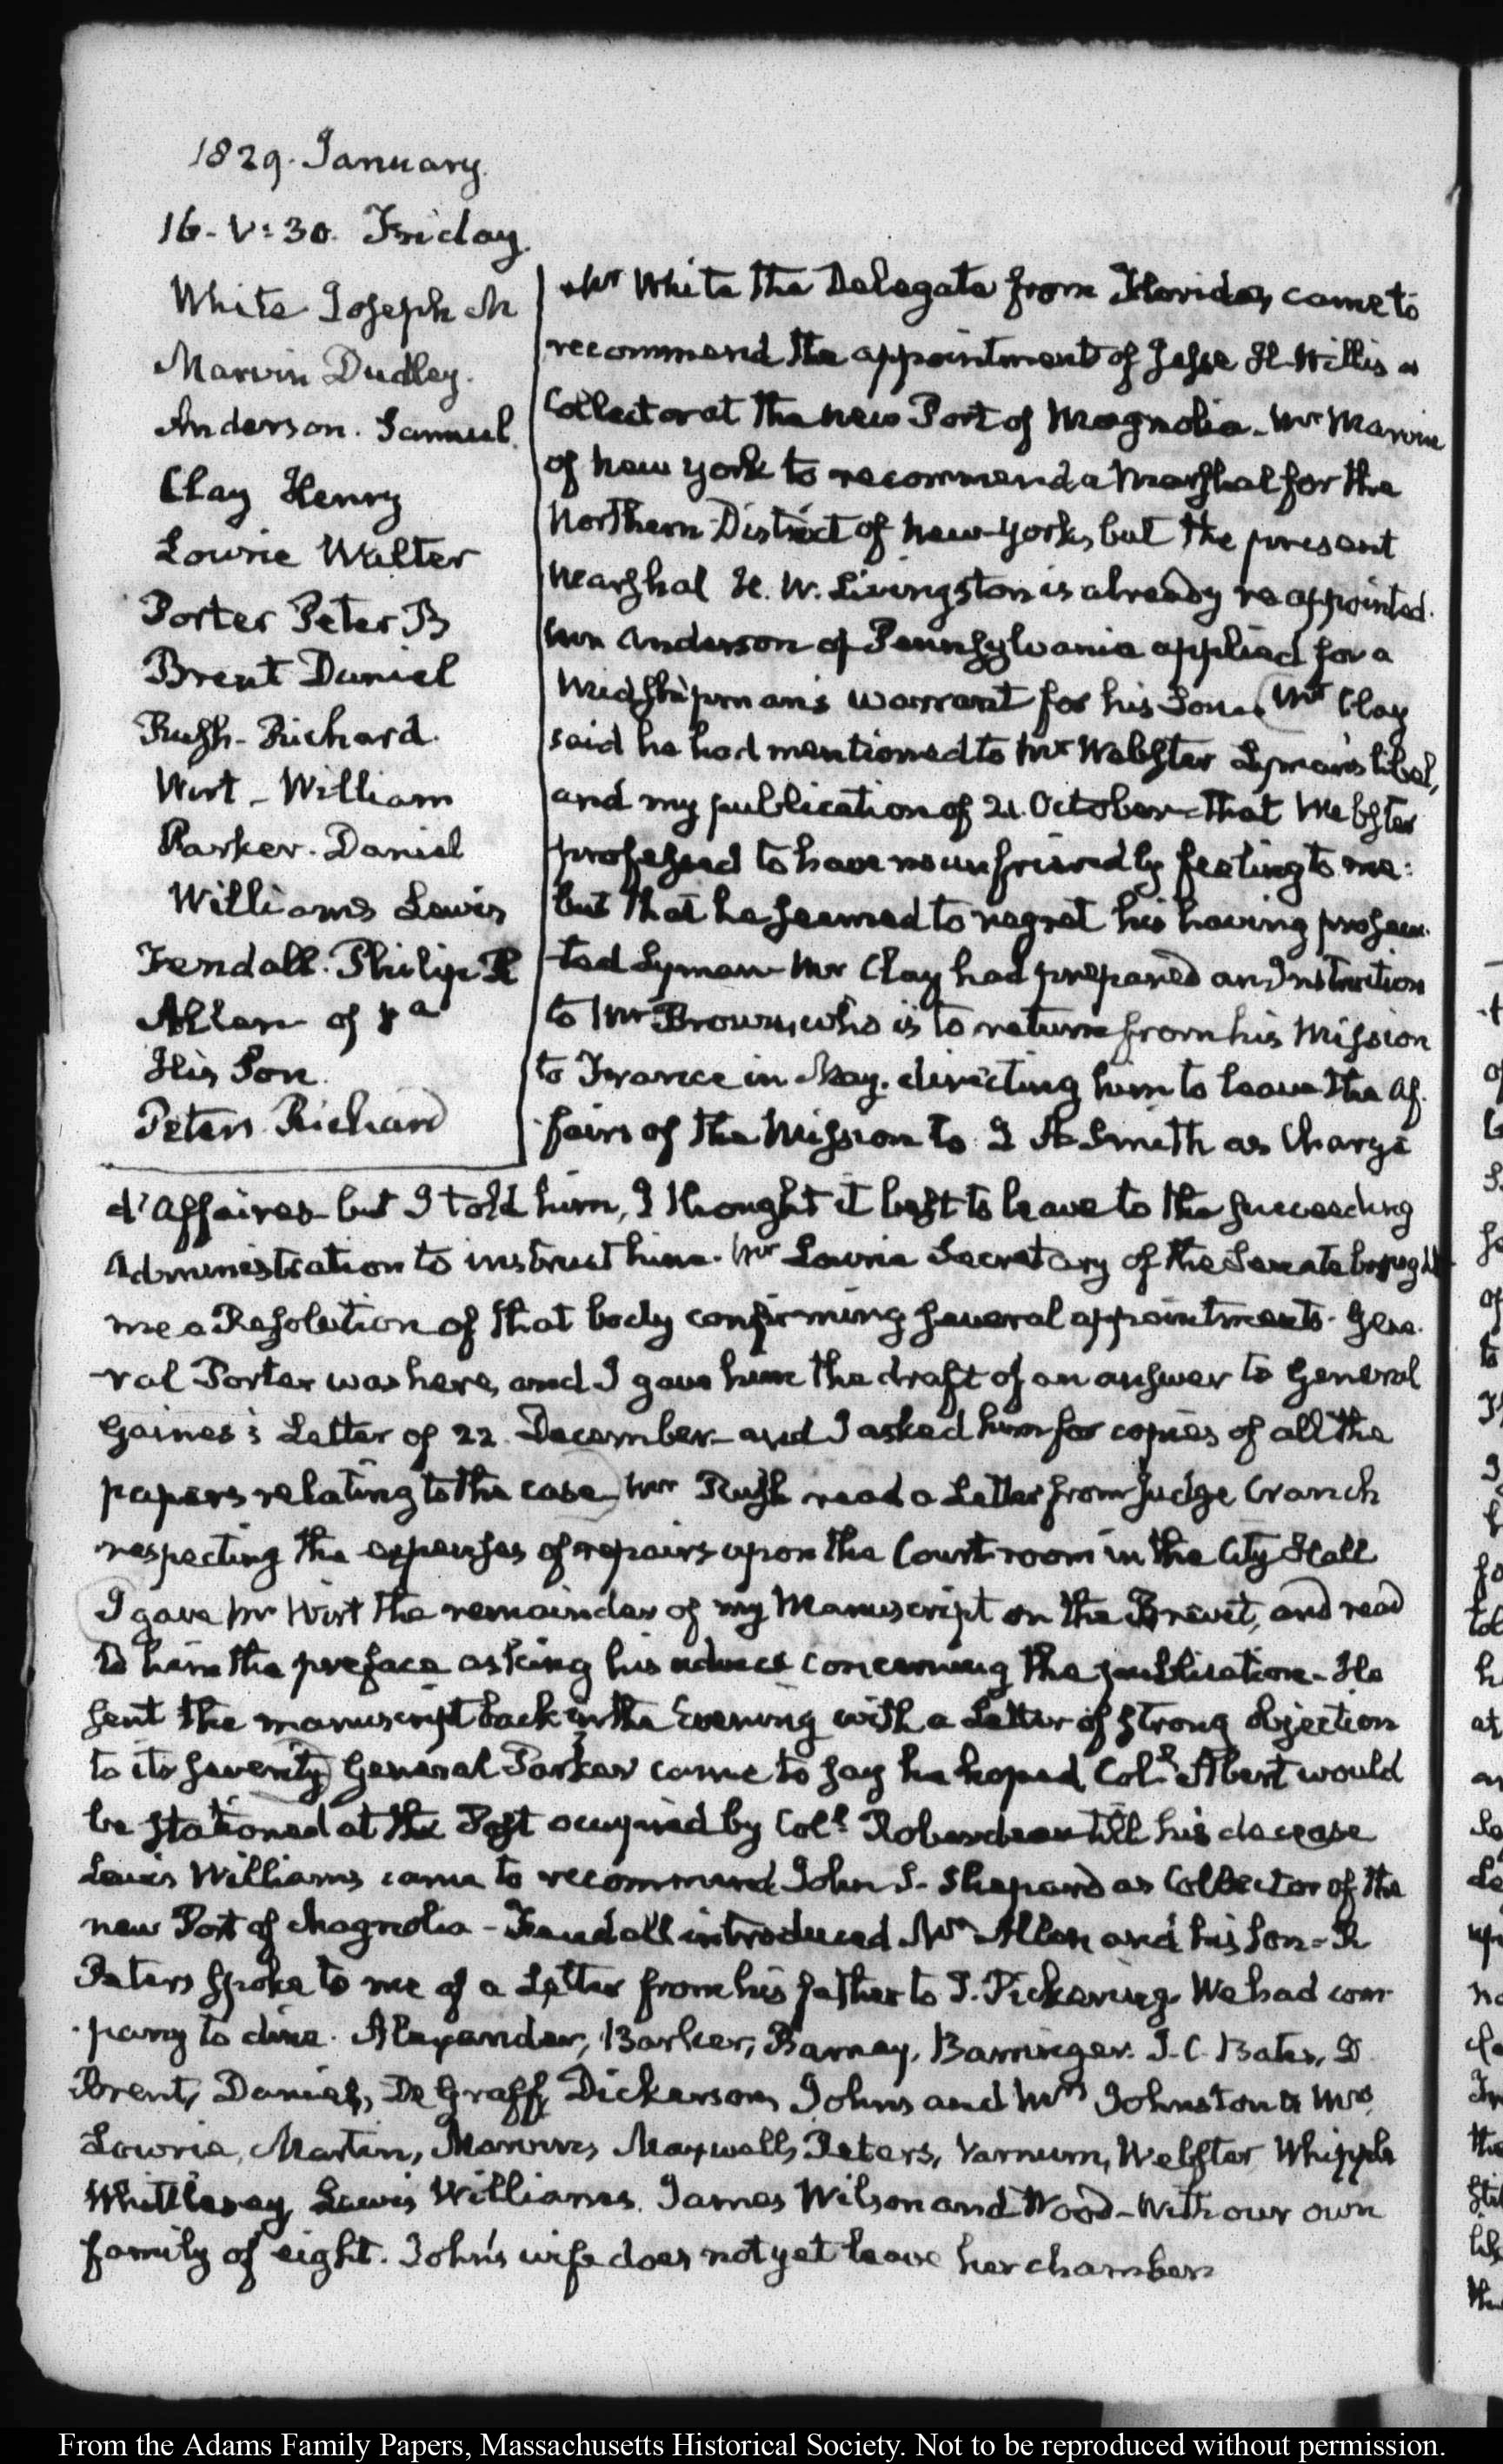 1829. January.
16. V: 30. Friday.
White Joseph M
Marvin Dudley.
Anderson. Samuel.
Clay Henry
Lowrie Walter
Porter Peter B
Brent Daniel
Rush. Richard.
Wirt. William
Parker. Daniel
Williams Lewis
Fendall. Philip R
Allan of Va
His Son.
Peters Richard
Mr White the Delegate from Florida, came to
recommend the appointment of Jesse H. Willis as
Collector at the new Port of Magnolia. Mr Marvin
of New York to recommend a Marshal for the
Northern District of New-York, but the present
Marshal H. W. Livingston is already reappointed.
Mr Anderson of Pennsylvania applied for a
Midshipman's warrant for his Son. Mr Clay
said he had mentioned to Mr Webster Lyman's libel,
and my publication of 21. October. That Webster
professed to have no unfriendly feeling to me:
but that he seemed to regret his having prosecu-
ted Lyman. Mr Clay had prepared an Instruction
to Mr Brown, who is to return from his Mission
to France in May. directing him to leave the Af-
fairs of the Mission to J A Smith as Chargé
d'Affaires but I told him, I thought it best to leave to the succeeding
Administration to instruct him. Mr Lowrie Secretary of the Senate brought
me a Resolution of that body confirming several appointments. Gene-
ral Porter was here, and I gave him the draft of an answer to General
Gaines's Letter of 22. December and I asked him for copies of all the
papers relating to the case. Mr Rush read a Letter from Judge Cranch
respecting the expenses of repairs upon the Court room in the City Hall
I gave Mr Wirt the remainder of my Manuscript on the Brevet, and read
to him the preface asking his advice concerning the publication. He
sent the manuscript back in the Evening with a Letter of strong objection
to its severity. General Parker came to say he hoped Coll Abert would
be stationed at the Post occupied by Coll Roberdeau till his decease
Lewis Williams came to recommend John S. Shepard as Collector of the
new Port of Magnolia - Fendall introduced Mr Allan and his Son - R
Peters spoke to me of a Letter from his father to T. Pickering. We had com-
pany to dine. Alexander, Barker, Barney, Barringer. I. C. Bates, D
Brent, Daniel, De Graff, Dickerson, Johns and Mrs Johnston & Mrs
Lowrie, Martin, Marvin, Maxwell, Peters, Varnum, Webster, Whipple
Whittlesey, Lewis Williams. James Wilson and Wood. With our own
family of eight. John's wife does not yet leave her chamber
From the Adams Family Papers, Massachusetts Historical Society. Not to be reproduced without permission.